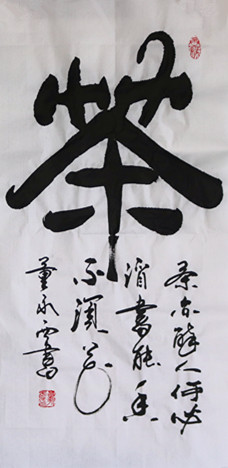 茶
茶亦醉人何必
酒書能香
不須花
董永書